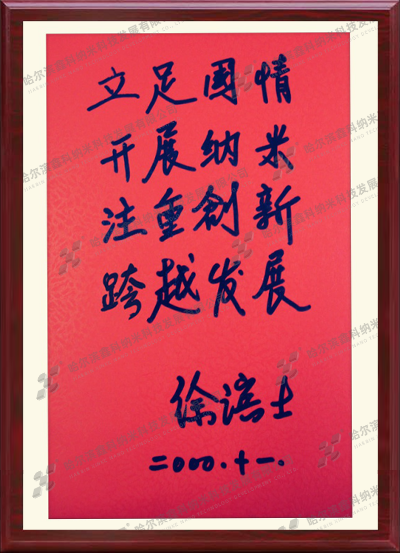 立足国情
开展纳米
注重创新
跨越发展
徐滨士
二000.十一.